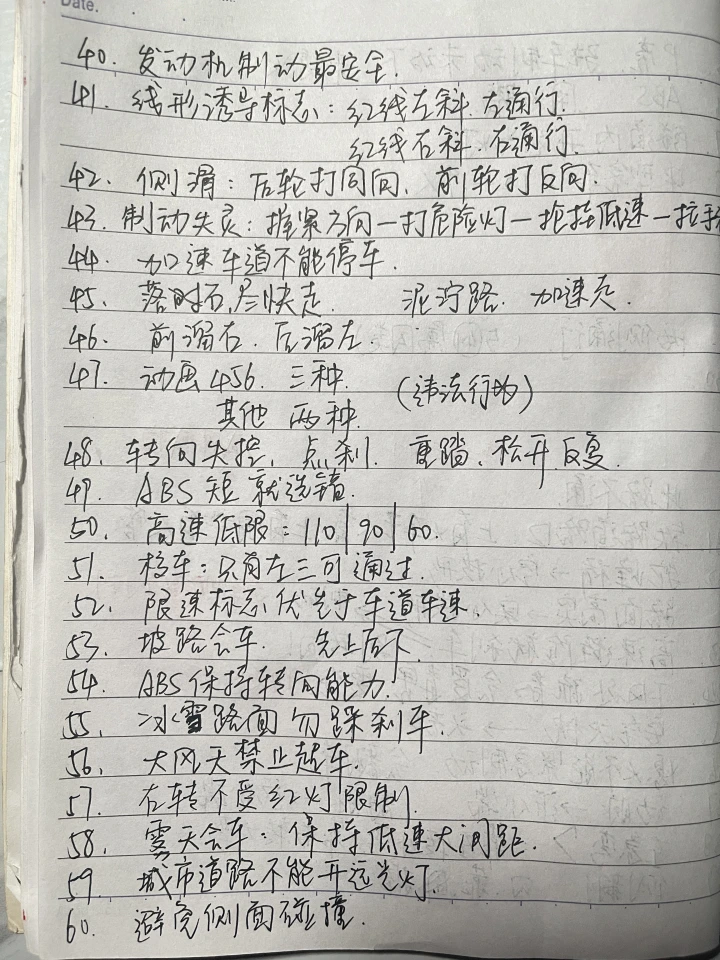 Date.
40. 发动机制动最安全.
41. 线形诱导标志：红线左斜. 左通行.
红线右斜. 右通行.
42. 侧滑：后轮打同向、前轮打反向.
43. 制动失灵：握紧方向—打危险灯—抢挂低速—拉手
44. 加速车道不能停车.
45. 落时石,尽快走. 泥泞路. 加速走.
46. 前溜右. 后溜左.
47. 动画456. 三种. (违法行为)
其他 两种.
48. 转向失控, 点刹. 重踏、松开 反复.
49. ABS 短 就选错.
50. 高速低限：110|90|60.
51. 校车：只有左三可通过.
52. 限速标志优先于车道车速.
53. 坡路会车. 先上后下.
54. ABS保持转向能力.
55. 冰雪路面勿踩刹车.
56. 大风天禁止超车.
57. 右转不受红灯限制.
58. 雾天会车：保持低速大间距.
59. 城市道路不能开远光灯.
60. 避免侧面碰撞.